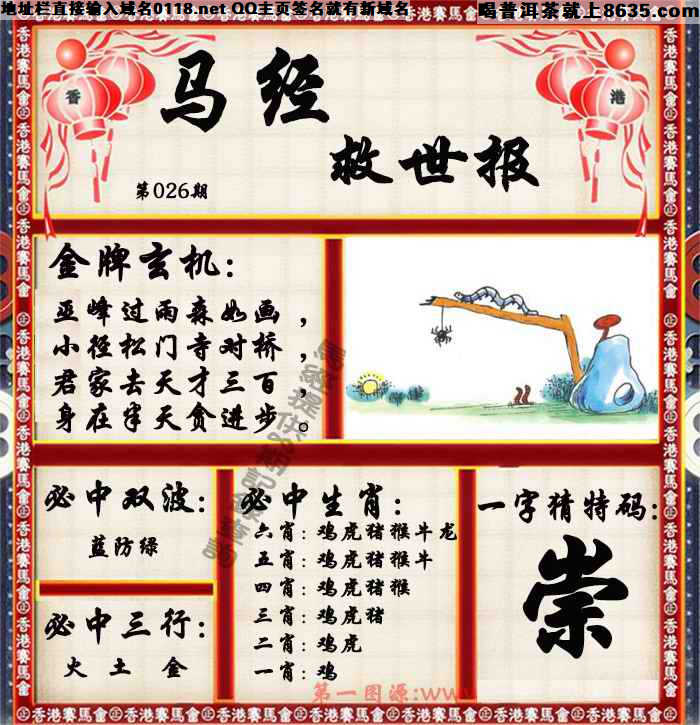 地址栏直接输入域名0118.net QQ主页签名就有新域名
喝普洱茶就上8635.com
香
港
马经
救世报
第026期
金牌玄机:
巫峰过雨森如画,
小径松门寺对桥,
君家去天才三百,
身在半天贪进步。
必中双波:
蓝防绿
必中三行:
火 土 金
必中生肖:
六肖:鸡虎猪猴牛龙
五肖:鸡虎猪猴牛
四肖:鸡虎猪猴
三肖:鸡虎猪
二肖:鸡虎
一肖:鸡
一字猜特码:
崇
第一图源:www
香港賽馬會